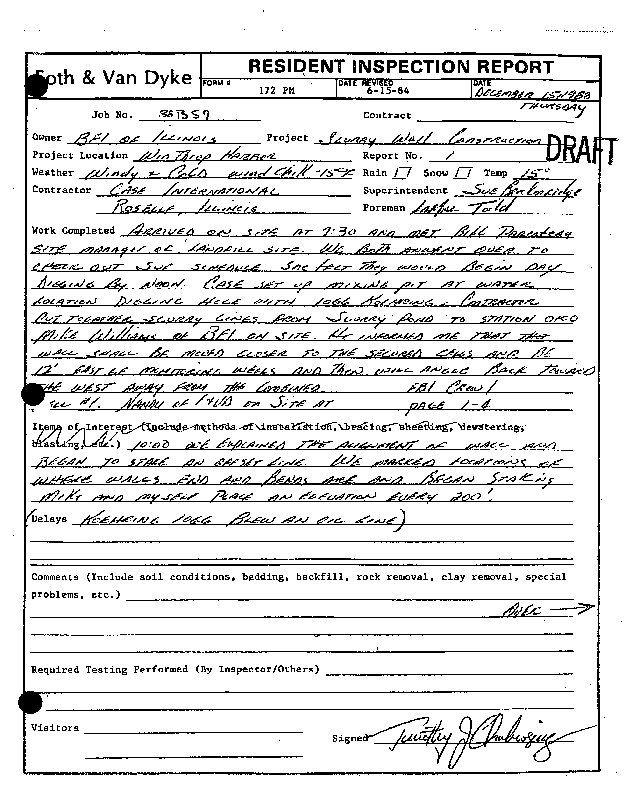 Foth & Van Dyke
RESIDENT INSPECTION REPORT
FORM # 172 PM
DATE REVISED 6-15-84
DATE DECEMBER 15, 1988
THURSDAY
Job No. Contract
Owner BFI OF ILLINOIS Project Slurry Wall Construction
DRAFT
Project Location Winthrop Harbor Report No. 1
Weather Windy & Cold wind chill -15°F Rain Snow Temp 15°
Contractor CASE INTERNATIONAL Superintendent Sue
ROSELLE, ILLINOIS Foreman Todd
Work Completed ARRIVED ON SITE AT 7:30 AND MET BILL
SITE MANAGER OF LANDFILL SITE. WE BOTH OVER TO
CHECK OUT SUE SCHEDULE. SHE FELT THEY WOULD BEGIN DAY
DIGGING BY NOON. CASE SET UP MIXING PIT AT WATER
LOCATION DIGGING HOLE WITH 1066 KOEHRING. CONTRACTOR
PUT TOGETHER SLURRY LINES FROM SLURRY POND TO STATION 0+00
MIKE WILLIAMS OF BFI ON SITE. HE INFORMED ME THAT THE
WALL SHALL BE MOVED CLOSER TO THE AND BE
12' EAST OF MONITORING WELLS AND THEN WILL ANGLE BACK TOWARD
THE WEST AWAY FROM THE
#1. OF ON SITE AT PAGE 1-A
Items of Interest (Include methods of installation, bracing, sheeting, dewatering,
blasting, etc.) 10:00 WE EXPLAINED THE ALIGNMENT OF WALL AND
BEGAN TO STAKE AN OFFSET LINE. WE MARKED LOCATIONS OF
WHERE WALLS END AND BENDS ARE AND BEGAN STAKING
MIKE AND MYSELF PLACE AN ELEVATION EVERY 200'.
(Delays KOEHRING 1066 BLEW AN OIL LINE)
Comments (Include soil conditions, bedding, backfill, rock removal, clay removal, special
problems, etc.)
OVER →
Required Testing Performed (By Inspector/Others)
Visitors
Signed Timothy J